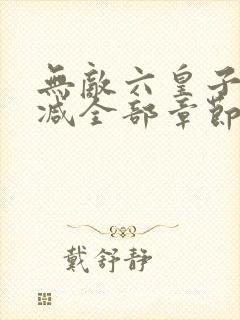 無敵六皇子
減全部章節
戴舒靜